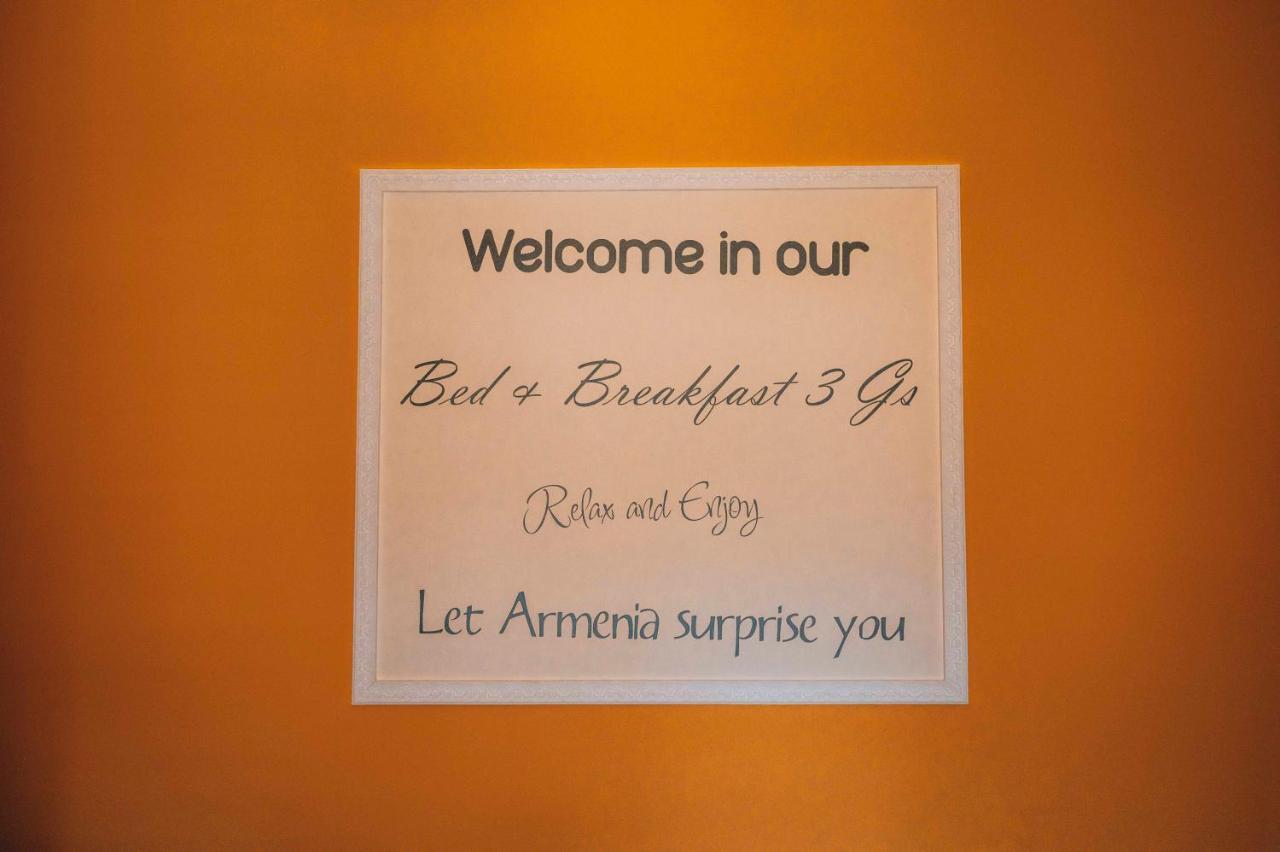 Welcome in our
Bed & Breakfast 3 Gs
Relax and Enjoy
Let Armenia surprise you